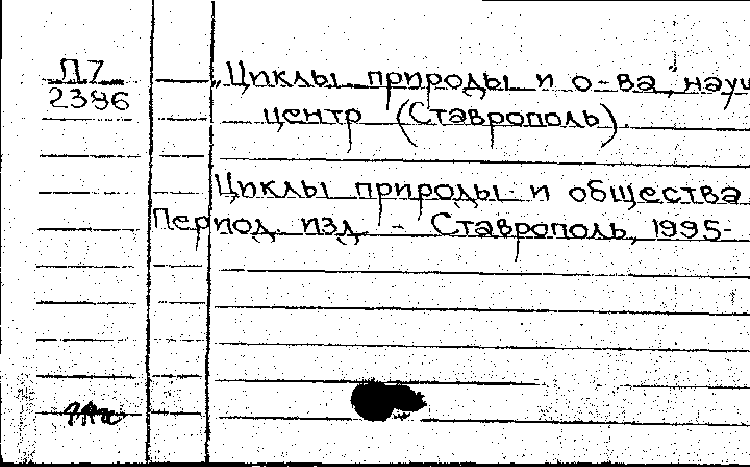 П7
2386
„Циклы природы и о-ва", науч
центр (Ставрополь).
Циклы природы и общества
Период. изд. - Ставрополь, 1995-